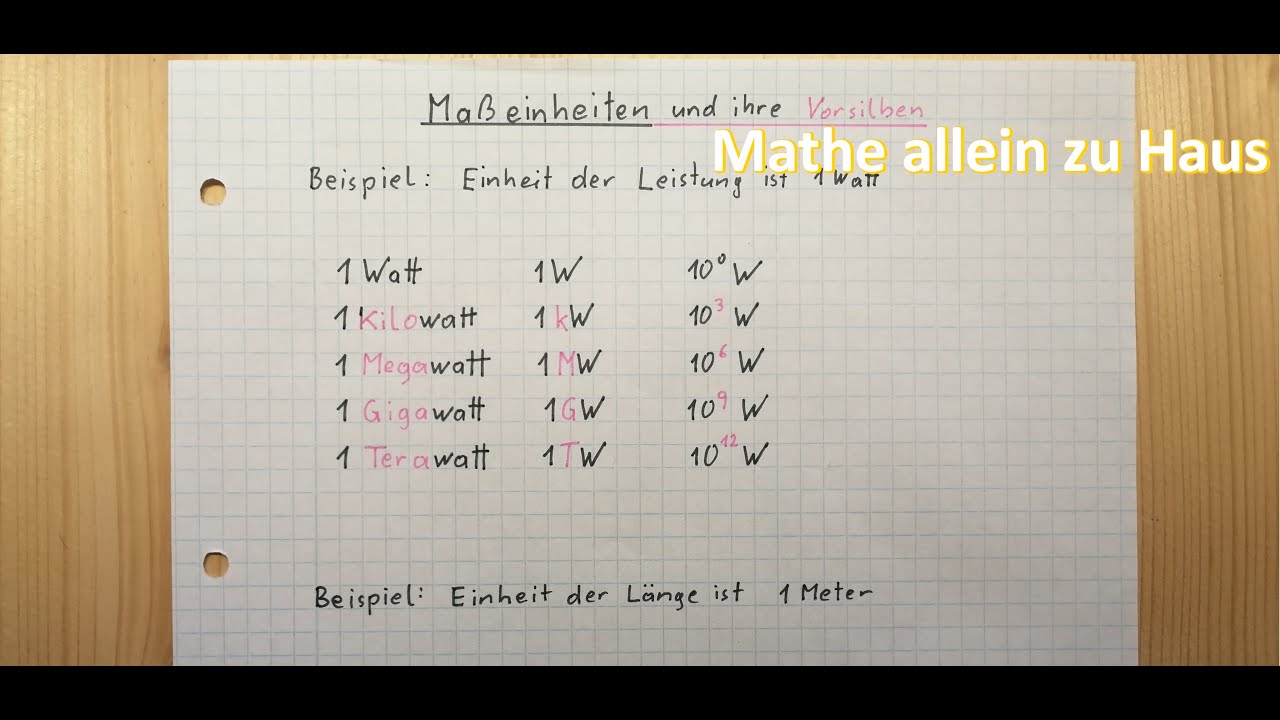 Maßeinheiten und ihre Vorsilben
Mathe allein zu Haus
Beispiel: Einheit der Leistung ist 1 Watt
1 Watt 1 W 10⁰ W
1 Kilowatt 1 kW 10³ W
1 Megawatt 1 MW 10⁶ W
1 Gigawatt 1 GW 10⁹ W
1 Terawatt 1 TW 10¹² W
Beispiel: Einheit der Länge ist 1 Meter